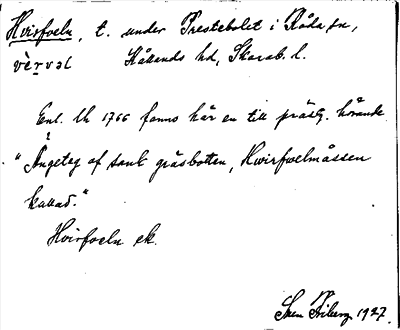 Hvirfveln, t. under Prestebolet i Råda sn,
vèrvəl Kållands hd, Skarab. l.
Enl. LA 1766 fanns här en till prästg. hörande
"Ängetag af sank gräsbotten, Hwirfwelmåssen
kallad."
Hvirfveln ek.
Sven Friberg 1927.